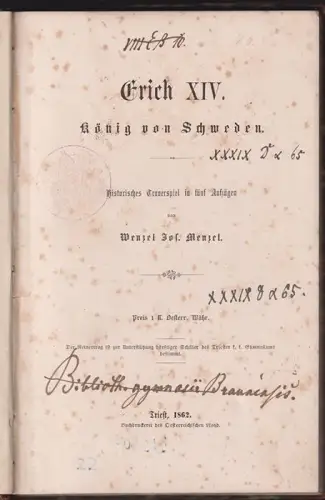 Erich XIV.
König von Schweden.
XXXIX D α 65
Historisches Trauerspiel in fünf Aufzügen
von
Wenzel Jos. Menzel.
XXXIX D α 65.
Preis 1 fl. Oesterr. Währ.
Der Reinertrag ist zur Unterstützung dürftiger Schüler des Triester k. k. Gymnasiums
bestimmt.
Biblioth. gymnasii Braunensis.
Triest, 1862.
Buchdruckerei des Oesterreichischen Lloyd.